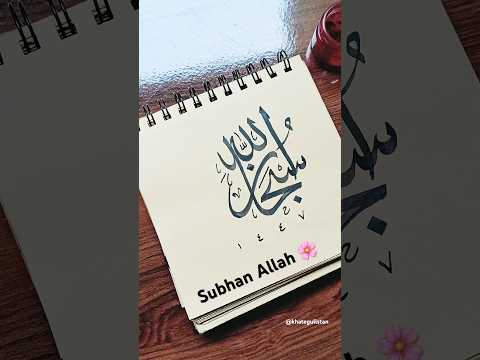 سبحان الله
١٤٤٧
Subhan Allah 🌸
@khategulistan